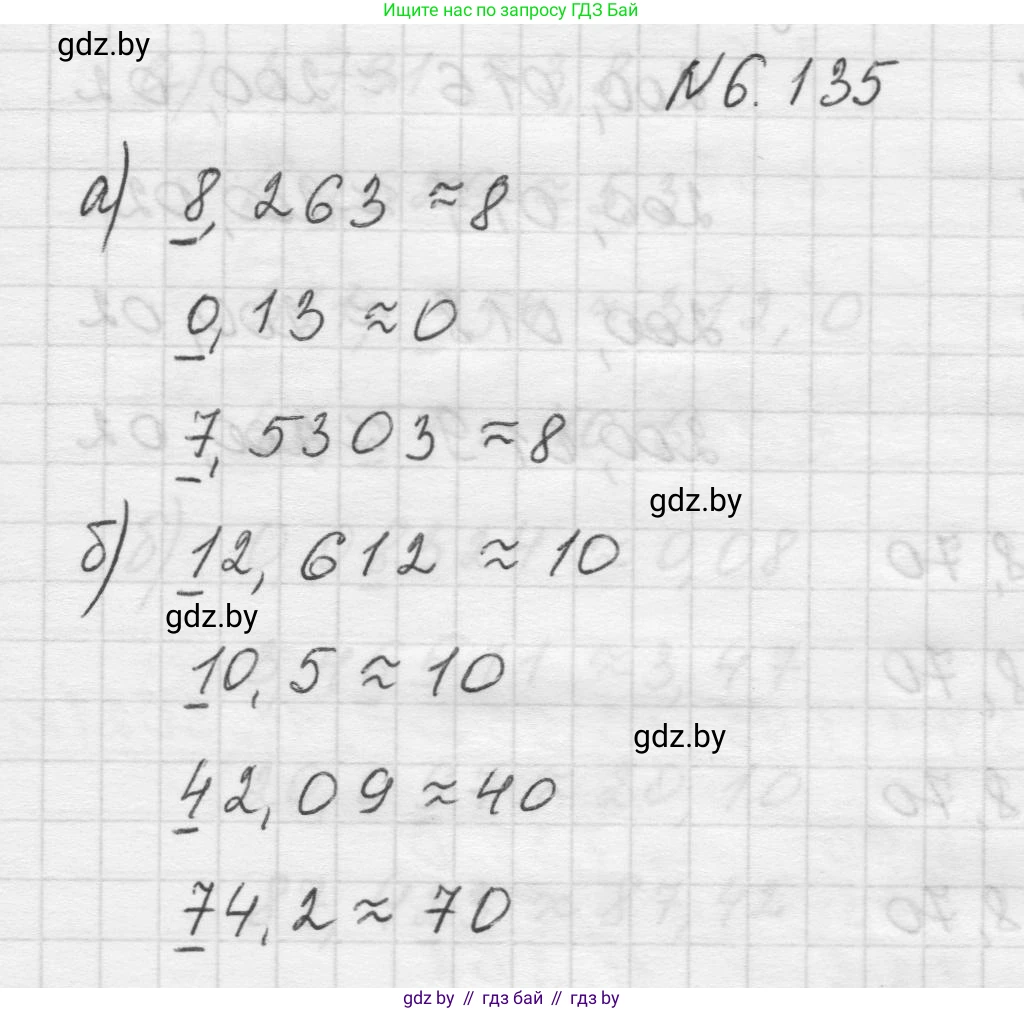 Ищите нас по запросу ГДЗ Бай
gdz.by
№6.135
а) 8,263 ≈ 8
0,13 ≈ 0
7,5303 ≈ 8
gdz.by
б) 12,612 ≈ 10
gdz.by
10,5 ≈ 10
gdz.by
42,09 ≈ 40
74,2 ≈ 70
gdz.by // гдз бай // гдз by